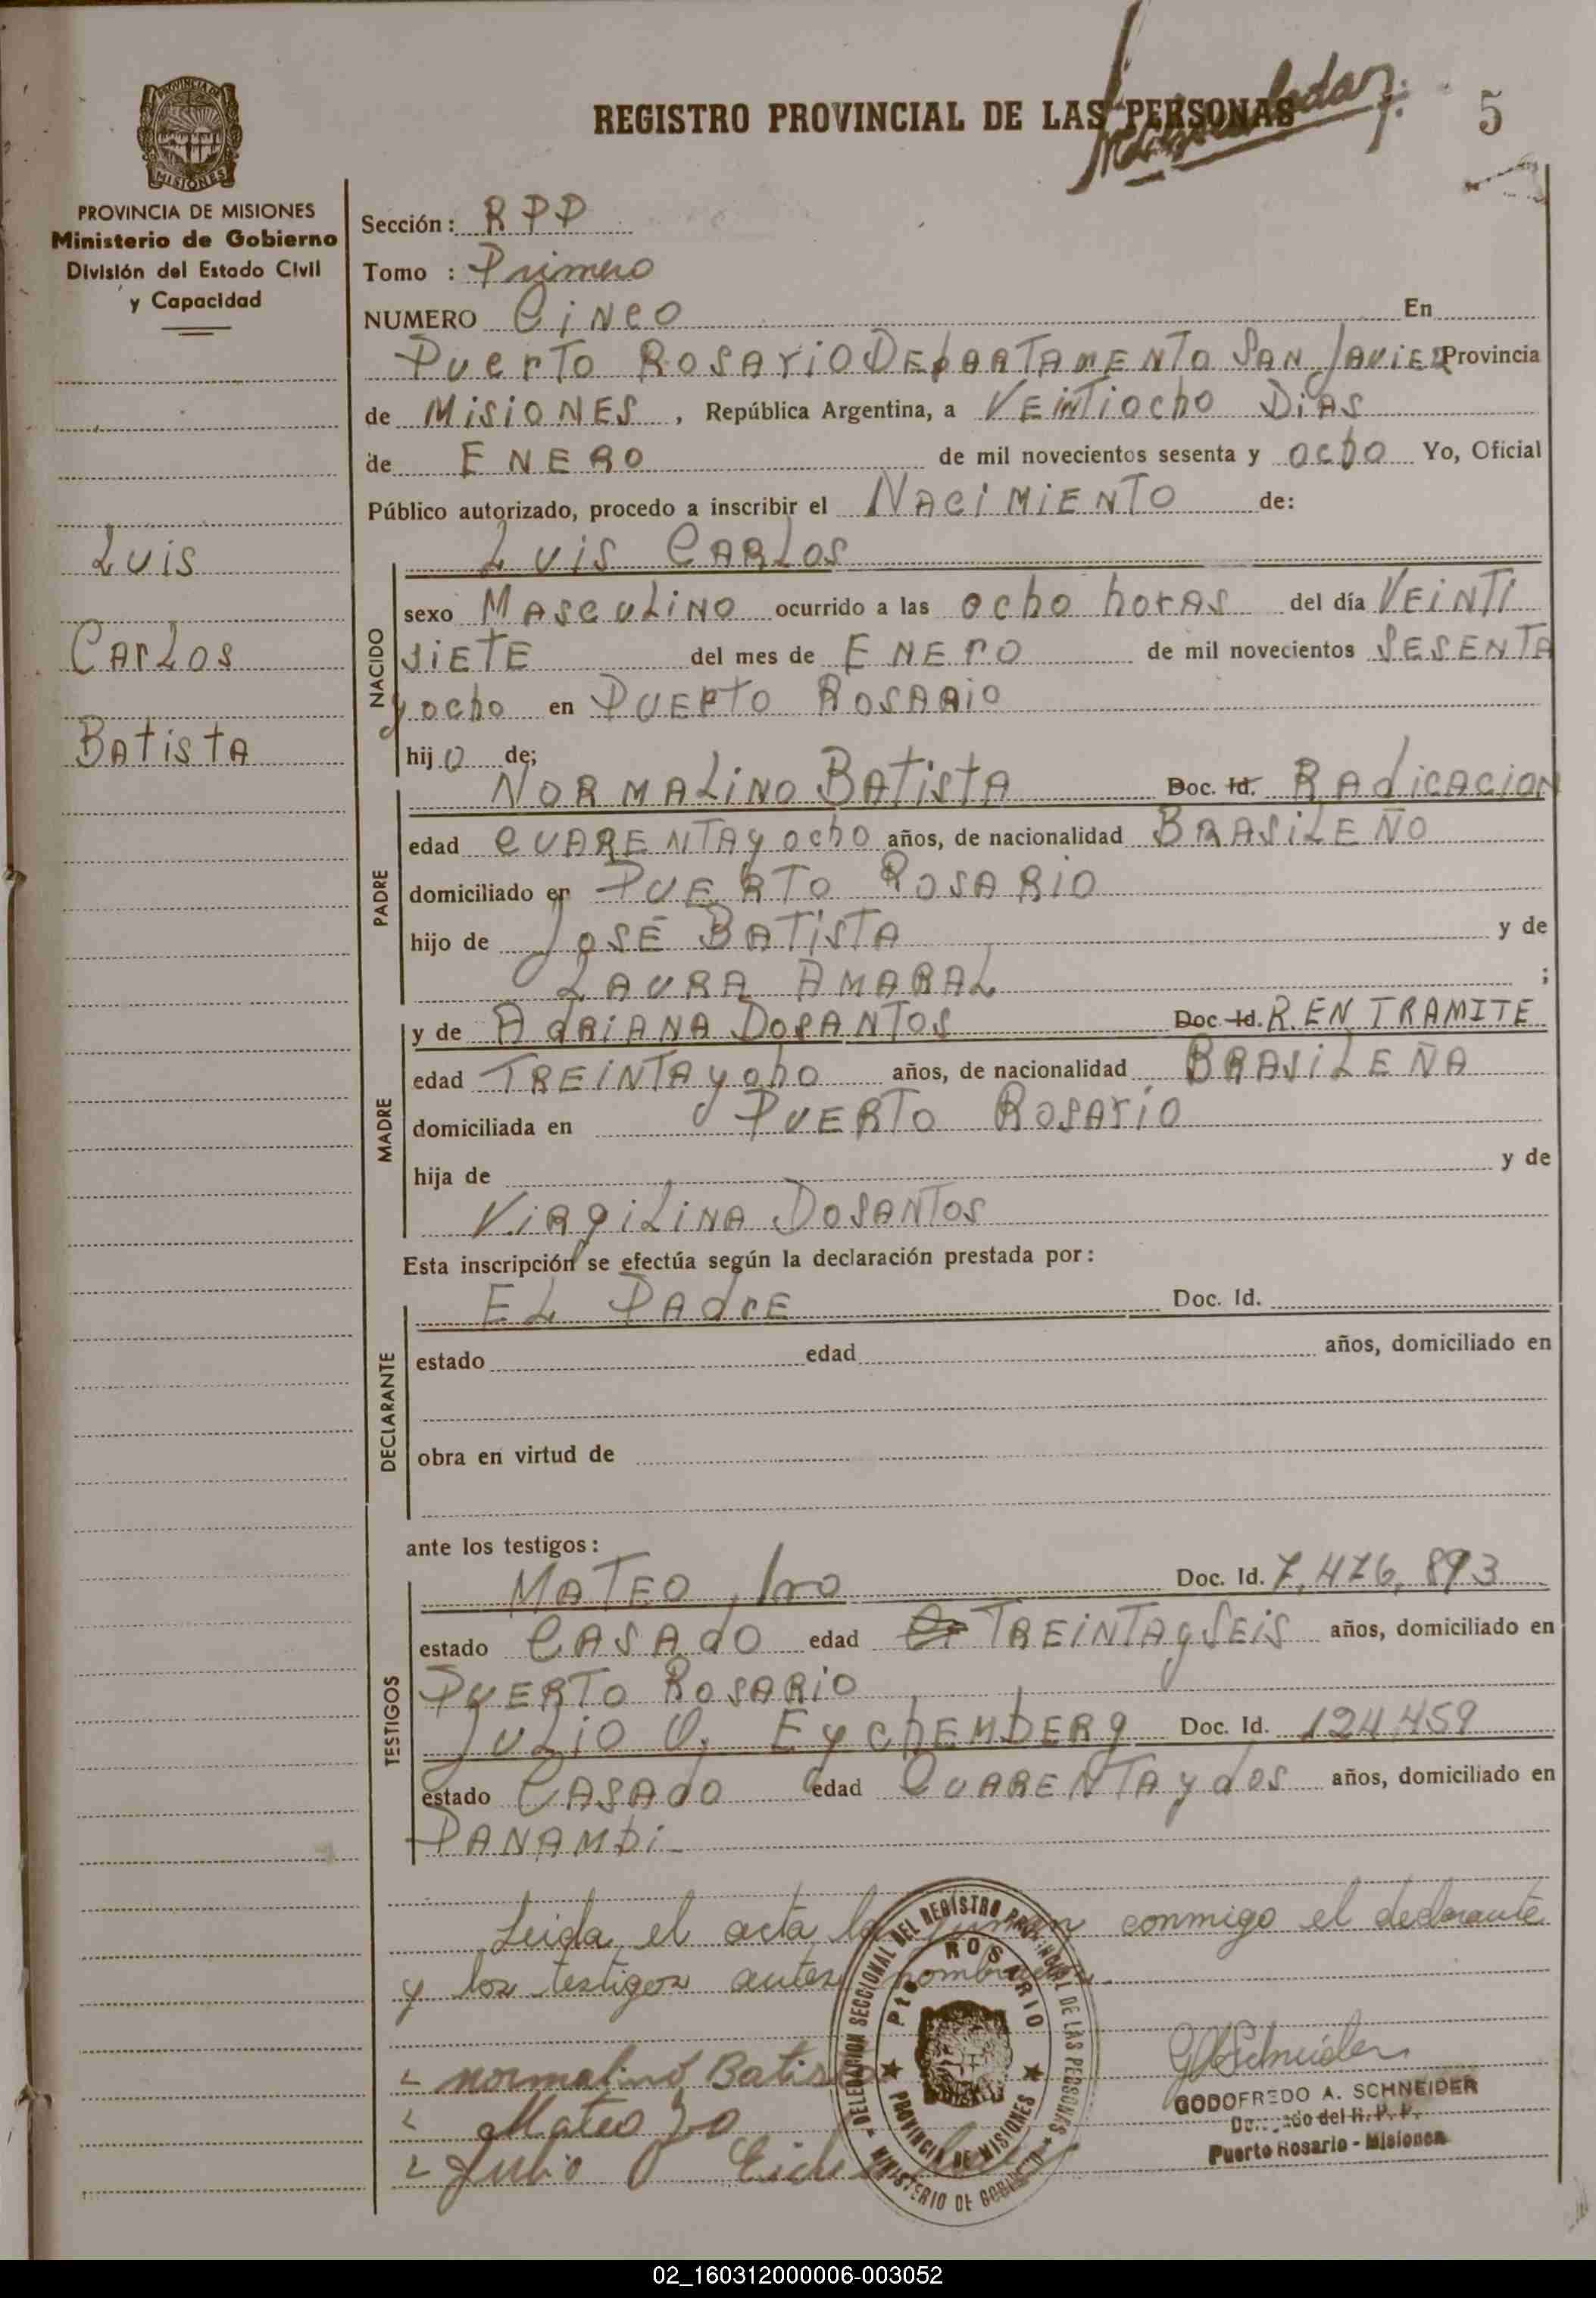 REGISTRO PROVINCIAL DE LAS PERSONAS
5
PROVINCIA DE MISIONES
PROVINCIA DE MISIONES
Ministerio de Gobierno
División del Estado Civil
y Capacidad
Luis
Carlos
Batista
Sección: RPP
Tomo : Primero
NUMERO CiNco En
Puerto Rosario Departamento San Javier Provincia
de MisiONES, República Argentina, a VEiNTiocho DiAS
de ENERO de mil novecientos sesenta y ocho Yo, Oficial
Público autorizado, procedo a inscribir el NACiMiENTO de:
NACIDO
Luis CARLos
sexo MAscuLiNO ocurrido a las ocho horAs del día VEiNTi
siETE del mes de ENErO de mil novecientos SESENTA
y ocho en PUERTO ROSARiO
hijo de;
PADRE
NORMALiNO BATiSTA Doc. Id. RAdicAcioN
edad CUARENTA y ocho años, de nacionalidad BRASiLEÑO
domiciliado en PUERTO ROSARIO
hijo de JOSÉ BATISTA y de
LAURA AMARAL ;
MADRE
y de AdRiANA DoSANTOS Doc. Id. R. EN TRAMITE
edad TREiNTA y oho años, de nacionalidad BRASiLEÑA
domiciliada en PUERTO ROSAriO
hija de y de
ViRgiLiNA DOSANTOS
Esta inscripción se efectúa según la declaración prestada por:
DECLARANTE
EL PAdrE Doc. Id.
estado edad años, domiciliado en
obra en virtud de
ante los testigos:
TESTIGOS
MATEO Doc. Id. 7,476,893
estado CASAdO edad TREiNTA y SEiS años, domiciliado en
PUERTO ROSARiO
JULiO O. EychEMbERg Doc. Id. 124.459
estado CASAdO edad CUARENTA y dos años, domiciliado en
PANAMbi
Leida el acta, la firman conmigo el declarante
y los testigos antes nombrados.
normalino Batista
Mateo
Julio O
DELEGACION SECCIONAL DEL REGISTRO PROVINCIAL DE LAS PERSONAS
Pto ROSARIO
PROVINCIA DE MISIONES
MINISTERIO DE GOBIERNO
GASchneider
GODOFREDO A. SCHNEIDER
Delegado del R. P. P.
Puerto Rosario - Misiones
02_160312000006-003052